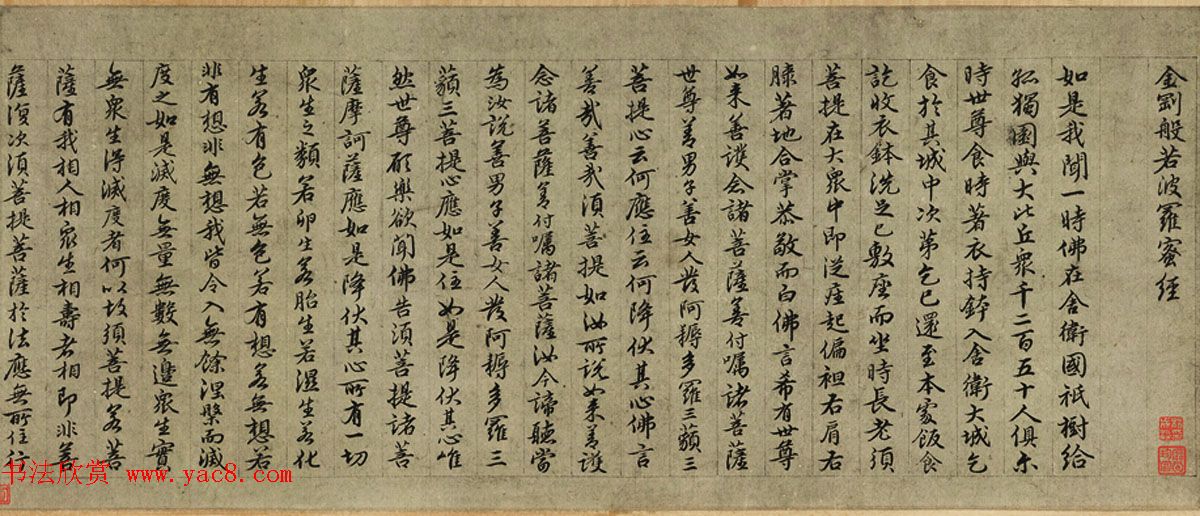 金剛般若波羅蜜經
如是我聞一時佛在舍衛國祇樹給
孤獨園與大比丘眾千二百五十人俱尒
時世尊食時著衣持鉢入舍衛大城乞
食於其城中次第乞已還至本處飯食
訖收衣鉢洗足已敷座而坐時長老須
菩提在大眾中即從座起偏袒右肩右
膝著地合掌恭敬而白佛言希有世尊
如来善護念諸菩薩善付囑諸菩薩
世尊善男子善女人發阿耨多羅三藐三
菩提心云何應住云何降伏其心佛言
善哉善哉須菩提如汝所說如来善護
念諸菩薩善付囑諸菩薩汝今諦聽當
為汝說善男子善女人發阿耨多羅三
藐三菩提心應如是住如是降伏其心唯
然世尊願樂欲聞佛告須菩提諸菩
薩摩訶薩應如是降伏其心所有一切
眾生之類若卵生若胎生若濕生若化
生若有色若無色若有想若無想若
非有想非無想我皆令入無餘涅槃而滅
度之如是滅度無量無數無邊眾生實
無眾生得滅度者何以故須菩提若菩
薩有我相人相眾生相壽者相即非菩
薩復次須菩提菩薩於法應無所住行
书法欣赏 www.yac8.com